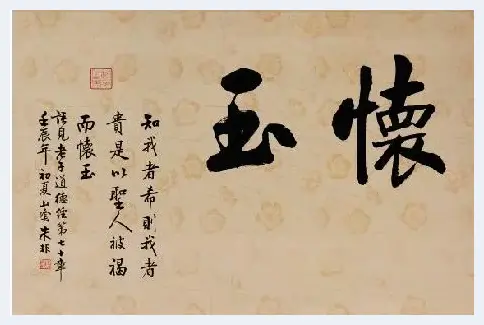 懷玉
知我者希則我者
貴是以聖人被褐
而懷玉
語見老子道德經第七十章
壬辰年初夏山巒朱非